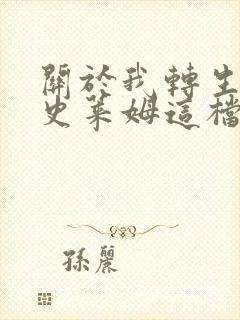 關於我轉生
史萊姆這檔
孫麗